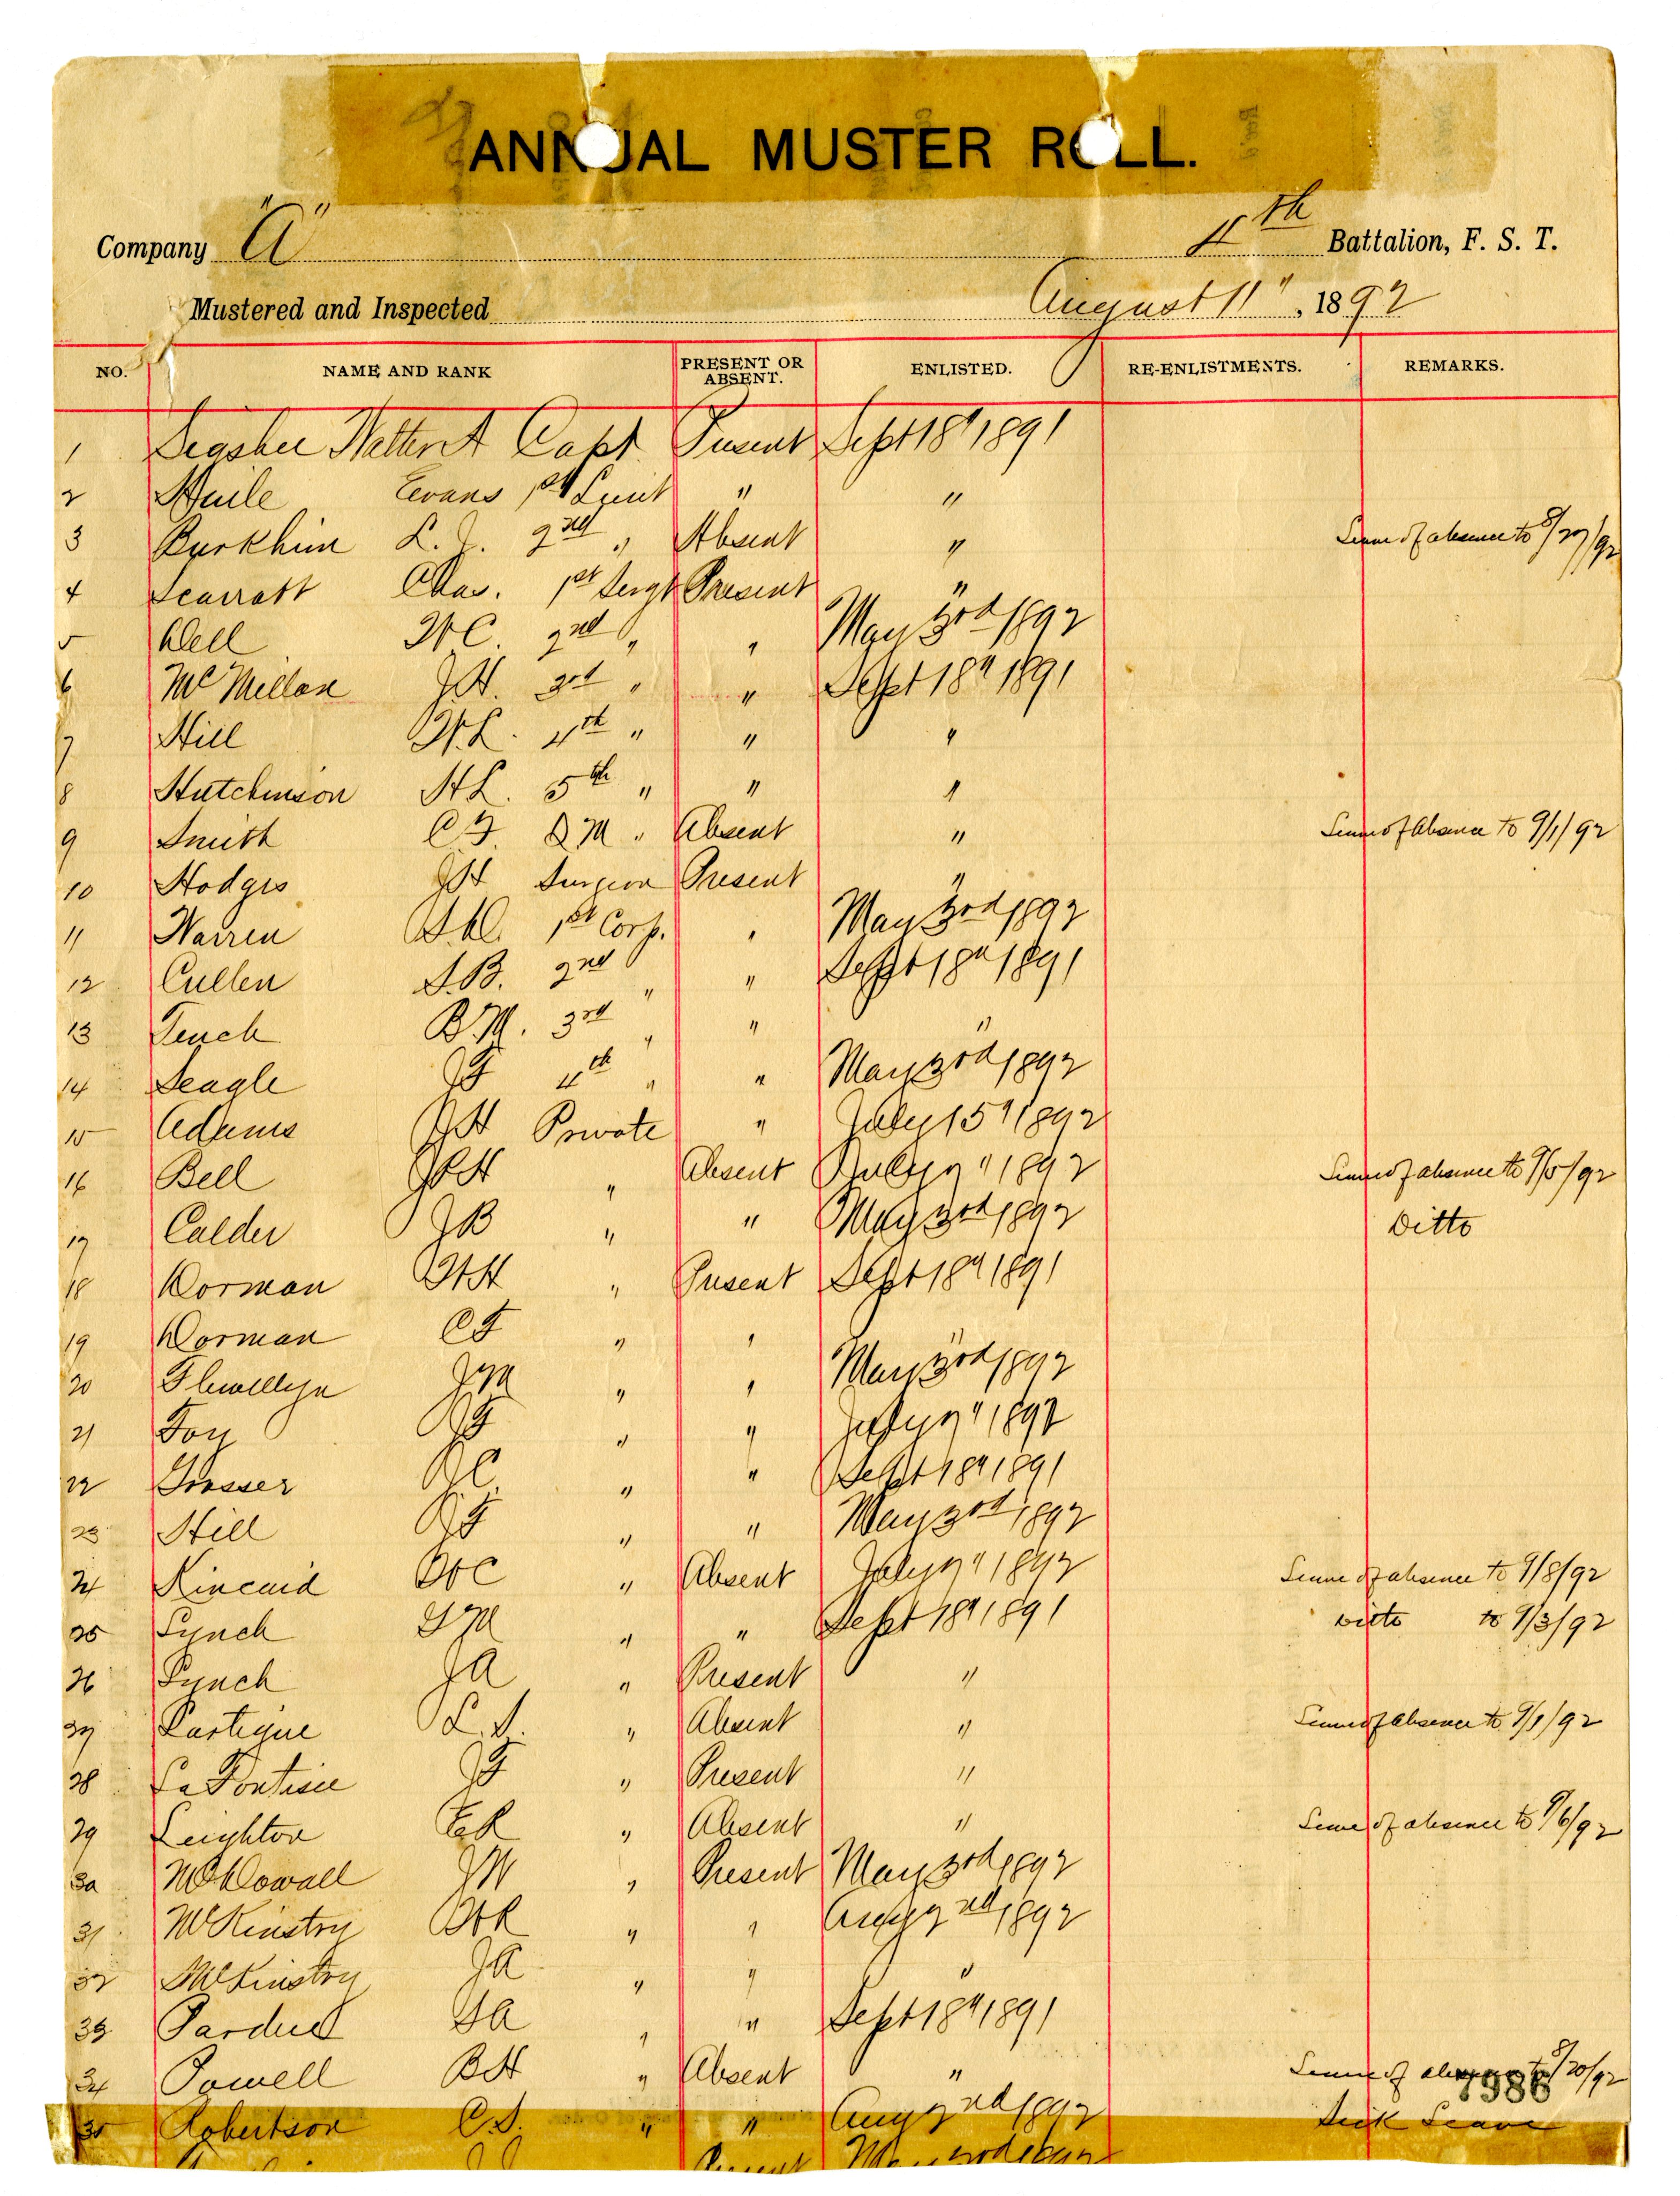 ANNUAL MUSTER ROLL.
Company "A" 4th Battalion, F. S. T.
Mustered and Inspected August 11", 1892
NO. NAME AND RANK PRESENT OR ABSENT. ENLISTED. RE-ENLISTMENTS. REMARKS.
1 Capt Present Sept 18" 1891
2 Haile Evans 1st Lieut " "
3 Burkhim L. J. 2nd " Absent " Leave of absence to 8/27/92
4 Scarratt Chas. 1st Sergt Present "
5 Dell W C. 2nd " " May 3rd 1892
6 McMillan J H. 3rd " " Sept 18" 1891
7 Hill W. L. 4th " " "
8 Hutchinson H L. 5th " " "
9 Smith C J. Q M " Absent " Leave of Absence to 9/1/92
10 Hodges J H Surgeon Present "
11 Warren 1st Corp. " May 3rd 1892
12 Cullen S. B. 2nd " " Sept 18" 1891
13 Tench B M. 3rd " " "
14 Seagle J F 4th " " May 3rd 1892
15 Adams J H Private " July 15" 1892
16 Bell J R H " Absent July 7" 1892 Leave of absence to 9/5/92
17 Calder J B " " May 3rd 1892 Ditto
18 Dorman W H " Present Sept 18" 1891
19 Dorman C F " " "
20 Flewellyn J M " " May 3rd 1892
21 Foy J F " " July 7" 1892
22 J C. " " Sept 18" 1891
23 Hill J F " " May 3rd 1892
24 Kincaid W C " Absent July 7" 1892 Leave of absence to 9/8/92
25 Lynch L M " " Sept 18" 1891 Ditto to 9/3/92
26 Lynch J A " Present "
27 Lartigue L. S. " Absent " Leave of Absence to 9/1/92
28 La Fontisee J F " Present "
29 Leighton E R " Absent " Leave of absence to 9/6/92
30 McDowall J W " Present May 3rd 1892
31 McKinstry W R " " Aug 2nd 1892
32 McKinstry J A " " "
33 Pardue J A " " Sept 18" 1891
34 Powell B H " Absent " Leave of absence to 8/20/92
7986
35 Robertson C. S. " " Aug 2nd 1892 Sick Leave
Present May 3rd 1892